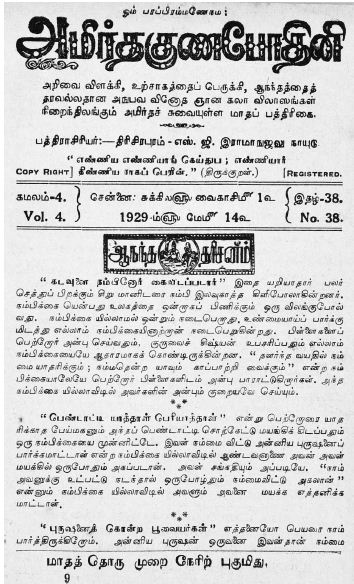 ஓம் பரப்பிரம்மணேநம:
அமிர்தகுணபோதினி
அறிவை விளக்கி, உற்சாகத்தைப் பெருக்கி, ஆநந்தத்தைத்
தரவல்லதான அநுபவ வினோத ஞான கலா விலாஸங்கள்
நிறைந்திலங்கும் அமிர்தச் சுவையுள்ள மாதப் பத்திரிகை.
பத்திராசிரியர்:—திரிசிரபுரம்—எஸ். ஜி. இராமாநுஜலு நாயுடு
“ எண்ணிய எண்ணியாங் கெய்துப ; எண்ணியார்
COPY RIGHT] திண்ணிய ராகப் பெறின்.” (திருக்குறள்.) [REGISTERED.
கமலம்-4. சென்னை: சுக்கிலஹு வைகாசிமீ 1உ இதழ்-38.
Vol. 4. 1929-ம்ஹு மேமீ 14உ No. 38.
ஆநந்த தரிசனம்
“ கடவுளை நம்பினோர் கைவிடப்படார் ” இதை யறியாதார் பலர்
செத்துப் பிறக்கும் சிறு மானிடரை நம்பி இலவுகாத்த கிளிபோலாகின்றனர்.
நம்பிக்கை யென்பது உலகத்தை ஒன்றாகப் பிணிக்கும் ஒரு விலங்குபோல்
வது. நம்பிக்கை யில்லாமல் ஒன்றும் நடைபெறாது. உண்மையாய்ப் பார்க்கு
மிடத்து எல்லாம் நம்பிக்கையினாற்றான் நடைபெறுகின்றது. பிள்ளைகளைப்
பெற்றோர் அன்பு செய்வதும், குருவைச் சிஷ்யன் உபசரிப்பதும் எல்லாம்
நம்பிக்கையையே ஆதாரமாகக் கொண்டிருக்கின்றன. “ தளர்ந்த வயதில் நம்
மை யாதரிக்கும் ; நம்மதென்ற யாவும் காப்பாற்றி வைக்கும் ” என்ற நம்
பிக்கையாலேயே பெற்றோர் பிள்ளைகளிடம் அன்பு பாராட்டுகிறார்கள். அந்த
நம்பிக்கை யில்லாவிடில் அவர்களின் அன்பும் குறையவே செய்யும்.
*
* *
“ பெண்டாட்டி வாந்தாள் பெரியாந்தாள் ” என்று பெற்றோரை யாத
ரிக்காத பேய்மகனும் அந்தப் பெண்டாட்டி சொற்கேட்டு மயங்கிக் கிடப்பதும்
ஒரு நம்பிக்கையை முன்னிட்டே. இவள் நம்மை விட்டு அன்னிய புருஷனைப்
பார்க்கமாட்டாள் என்ற நம்பிக்கை யில்லாவிடில் ஆண்டவனாணை அவன் அவள்
மயக்கில் ஒருபோதும் அகப்படான். அவள் சங்கதியும் அப்படியே. “நாம்
அவனுக்கு உட்பட்டு நடந்தால் ஒருபோழ்தும் நம்மைவிட்டு அகலான் ”
என்னும் நம்பிக்கை யில்லாவிடில் அவளும் அவனை மயக்க எத்தனிக்க
மாட்டாள்.
*
* *
“ புருஷனைக் கொன்ற பூவையர்கள் ” எத்தனையோ பெயரை நாம்
பார்த்திருக்கிறோம். அன்னிய புருஷன் ஒருவனை இவன்தான் நம்மை
மாதத் தொரு முறை நேரிற் புகுமிது,
9